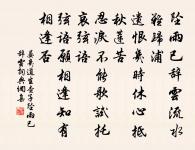 墜雨已辭雲流水
難歸浦
遺恨幾時休心抵
秋蓮苦
忍淚不能歌試托
哀弦語
弦語願相逢知有
相逢否
晏幾道生查子墜雨已
辭雲詞